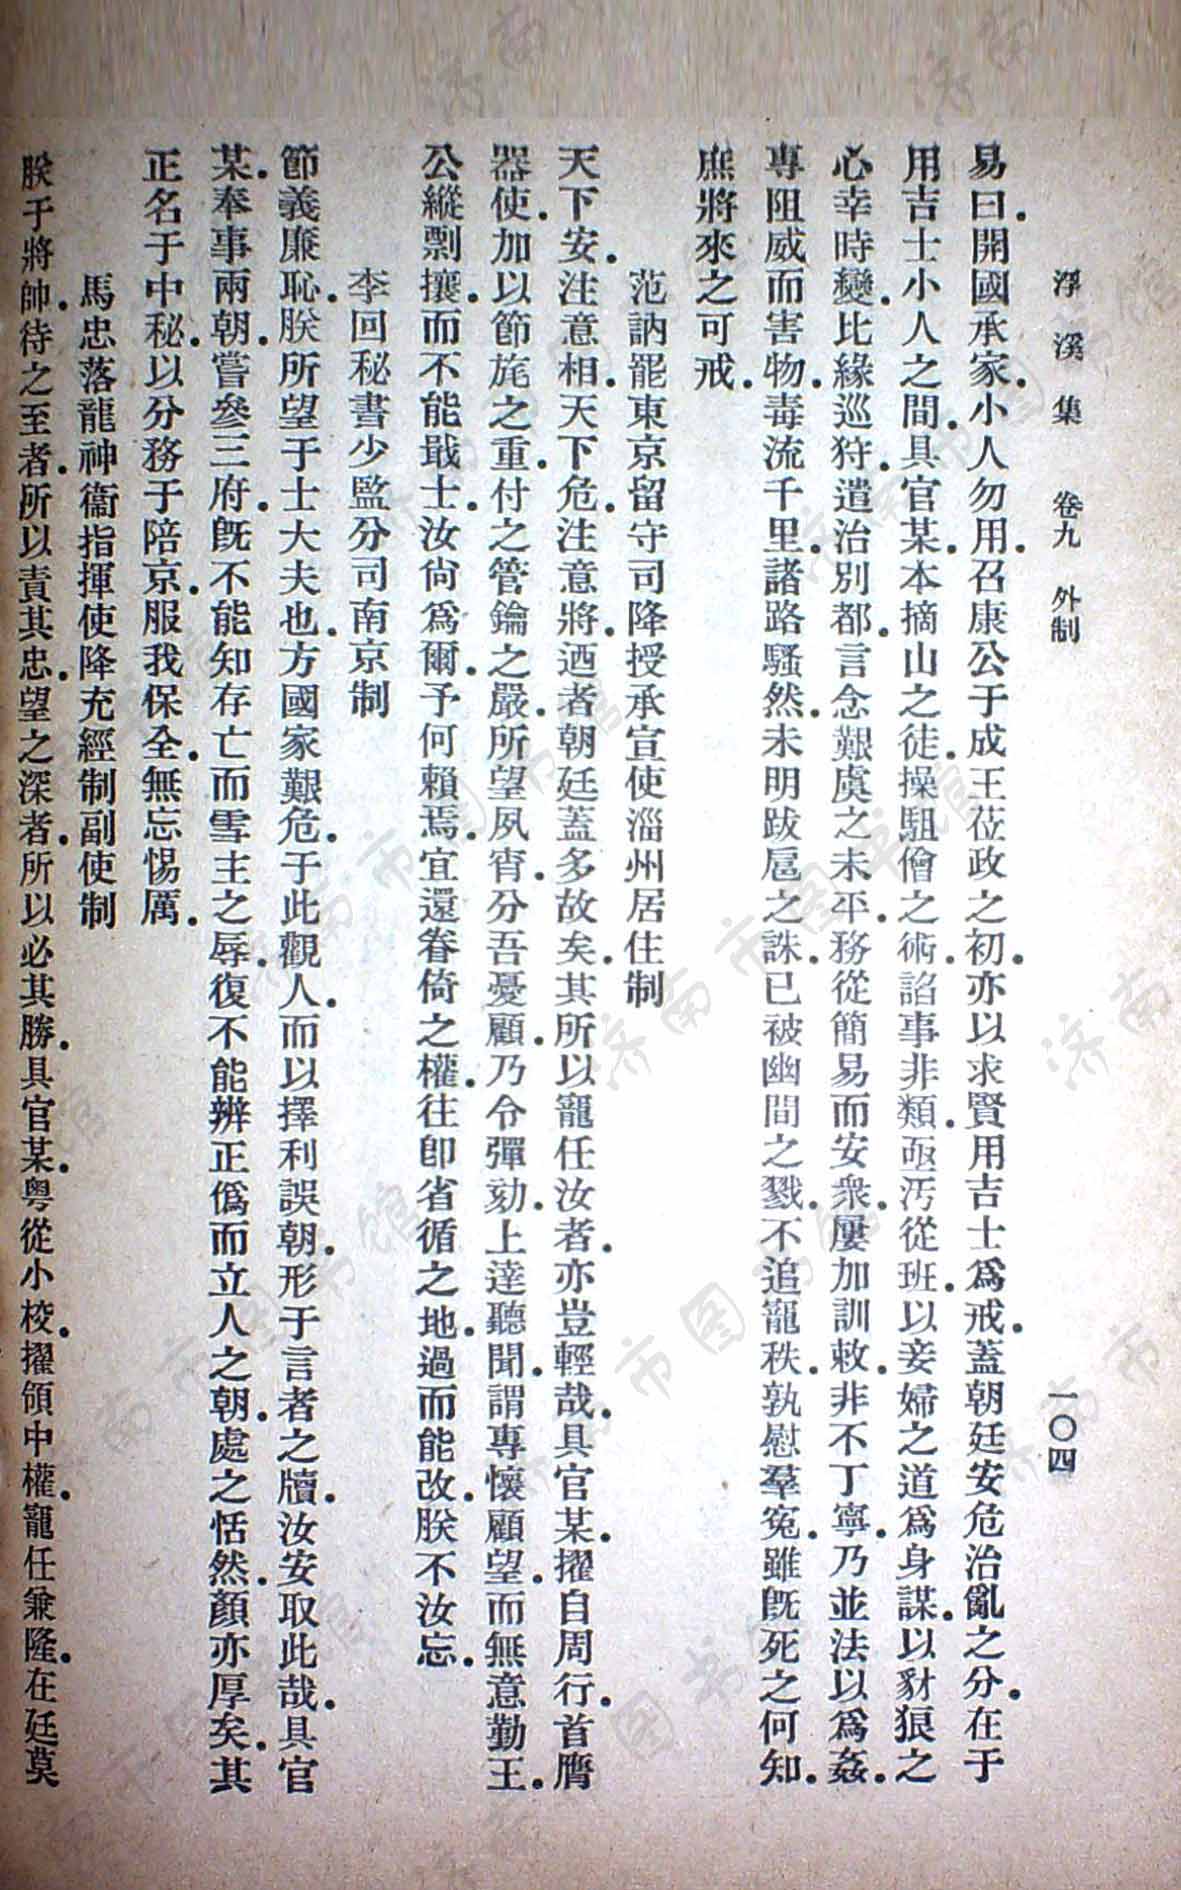 浮溪集 卷九 外制 一〇四
易曰.開國承家.小人勿用.召康公于成王莅政之初.亦以求賢用吉士爲戒.蓋朝廷安危治亂之分.在于
用吉士小人之間.具官某.本摘山之徒.操駔儈之術.諂事非類.亟汚從班.以妾婦之道爲身謀.以豺狼之
心幸時變.比緣巡狩.遣治別都.言念艱虞之未平.務從簡易而安衆.屢加訓敕.非不丁寧.乃並法以爲姦.
專阻威而害物.毒流千里.諸路騷然.未明跋扈之誅.已被幽間之戮.不追寵秩.孰慰羣冤.雖旣死之何知.
庶將來之可戒.
范訥罷東京留守司降授承宣使淄州居住制
天下安.注意相.天下危.注意將.迺者朝廷蓋多故矣.其所以寵任汝者.亦豈輕哉.具官某.擢自周行.首膺
器使.加以節旄之重.付之管鑰之嚴.所望夙宵.分吾憂顧.乃令彈劾.上達聽聞.謂專懷顧望.而無意勤王.
公縱剽攘.而不能戢士.汝尙爲爾.予何賴焉.宜還眷倚之權.往卽省循之地.過而能改.朕不汝忘.
李回秘書少監分司南京制
節義廉恥.朕所望于士大夫也.方國家艱危.于此觀人.而以擇利誤朝.形于言者之牘.汝安取此哉.具官
某.奉事兩朝.嘗參三府.旣不能知存亡而雪主之辱.復不能辨正僞而立人之朝.處之恬然.顏亦厚矣.其
正名于中秘.以分務于陪京.服我保全.無忘惕厲.
馬忠落龍神衞指揮使降充經制副使制
朕于將帥.待之至者.所以責其忠.望之深者.所以必其勝.具官某.粤從小校.擢領中權.寵任兼隆.在廷莫